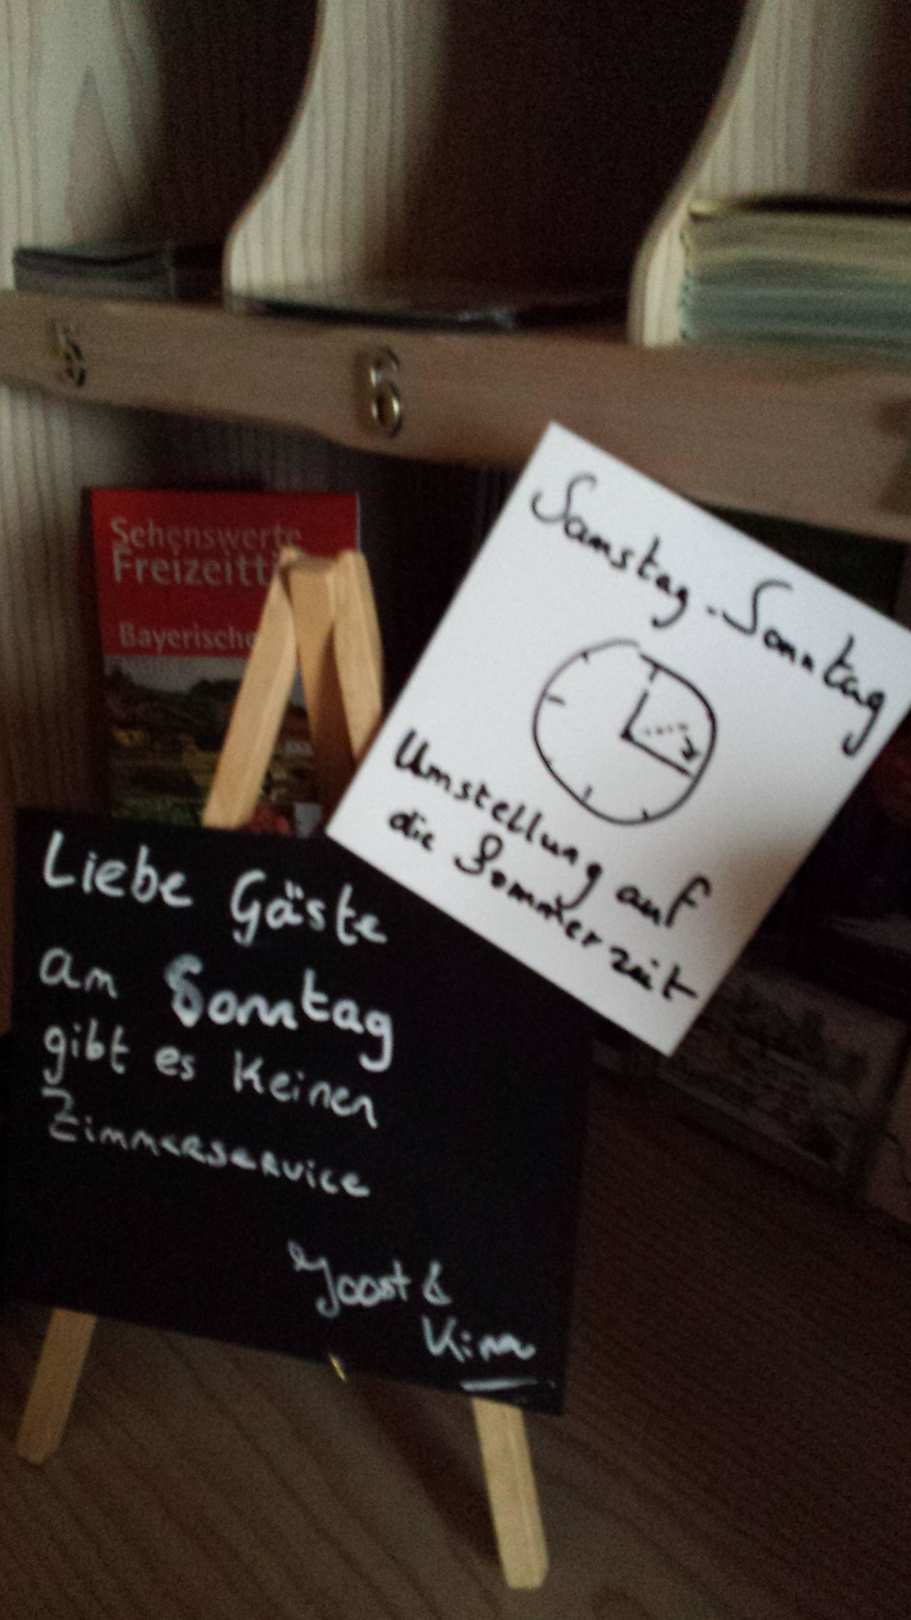 5
6
Sehenswerte
Freizeitti
Bayerische
Samstag - Sonntag
Umstellung auf
die Sommerzeit
Liebe Gäste
am Sonntag
gibt es Keinen
Zimmerservice
Joost &
Kim